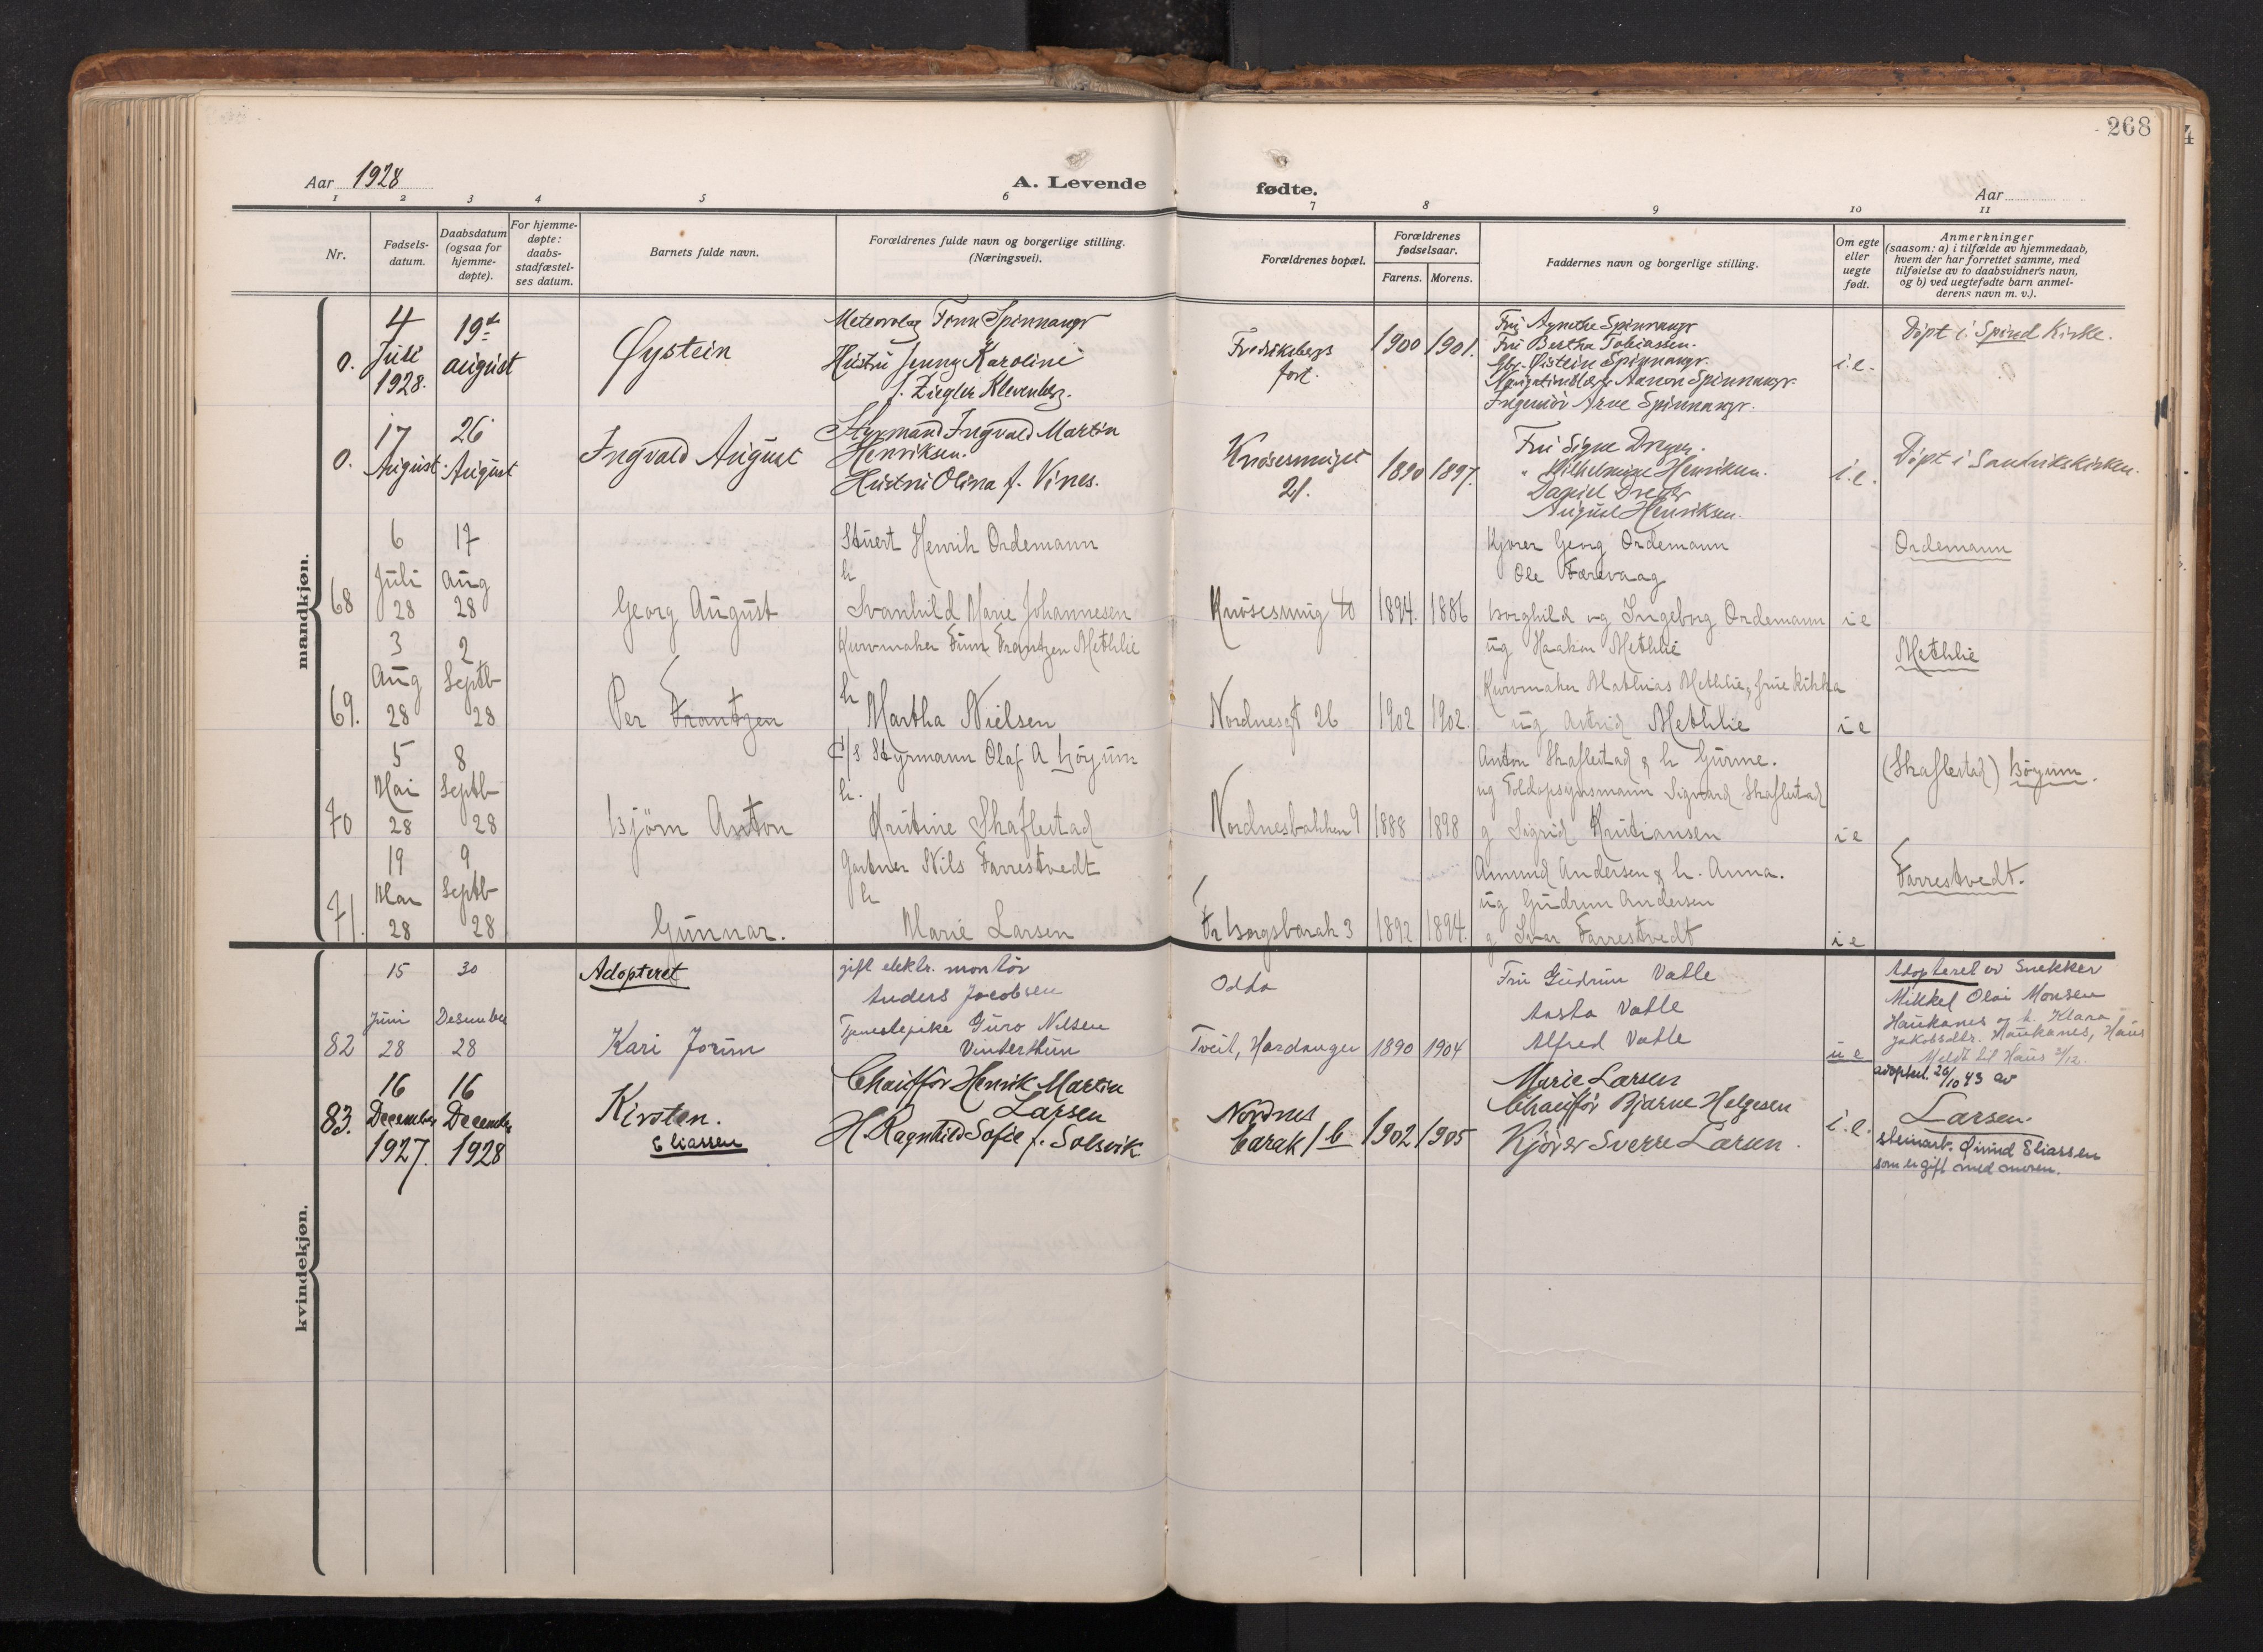 268
Aar 1928
A. Levende fødte.
Aar
1 2 3 4 5 6 7 8 9 10 11
Nr.
Fødsels-
datum.
Daabsdatum
(ogsaa for
hjemme-
døpte).
For hjemme-
døpte:
daabs-
stadfæstel-
ses datum.
Barnets fulde navn.
Forældrenes fulde navn og borgerlige stilling.
(Næringsvei).
Forældrenes bopæl.
Forældrenes
fødselsaar.
Farens. Morens.
Faddernes navn og borgerlige stilling.
Om egte
eller
uegte
født.
Anmerkninger
(saasom: a) i tilfælde av hjemmedaab,
hvem der har forrettet samme, med
tilføielse av to daabsvidners navn,
og b) ved uegtefødte barn anmel-
derens navn m. v.).
mandkjøn.
0.
4
Juli
1928.
19de
august
Øystein
Meteorolog Finn Spinnangr
Hustru Jenny Karoline
f. Ziegler Klevenberg.
Fredriksberg
fort.
1900 1901.
Fru Agnethe Spinnangr
Fru Bertha Tobiassen.
Øistein Spinnangr.
Aanon Spinnangr.
Ingeniør Arne Spinnangr.
i.e.
Døpt i Spind Kirke.
0.
17
August
26
August
Ingvald August
Styrmand Ingvald Martin
Henriksen.
Hustru Olina f. Vines.
Knøsesmuget
21.
1890 1897.
Fru Signe Dreyer.
" Wilhelmine Henriksen.
Daniel Dreyer
August Henriksen.
i.e.
Døpt i Sandvikskirken.
68
6
Juli
28
17
Aug
28
Georg August
Stuert Henrik Ordemann
h
Svanhild Marie Johannesen
Knøsesmug 40
1894. 1886
Kjører Georg Ordemann
Ole Færevaag
Borghild og Ingeborg Ordemann
i e
Ordemann
69.
3
Aug
28
2
Septb
28
Per Frantzen
Kurvmaker Finn Frantzen Methlie
h
Martha Nielsen
Nordnesgt 26
1902 1902.
ug Haakon Methlie
Kurvmaker Mathias Methlie, frue Rikka
ug Astrid Methlie
i e
Methlie
70
5
Mai
28
8
Septb
28
Bjørn Anton
Styrmann Olaf A Bøyum
h.
Kristine Skaflestad
Nordnesbakken 9
1888 1898
Anton Skaflestad & h Gurine.
ug Toldopsynsmann Sigvard Skaflestad
g Sigrid Kristiansen
i e
(Skaflestad) Bøyum.
71.
19
Mar
28
9
Septb
28
Gunnar.
Gartner Nils Farrestvedt
h
Marie Larsen
Fr borgsbarak 3
1892 1894.
Amund Andersen & h. Anna.
ug Gudrun Andersen
g Ivar Farrestvedt
i e
Farrestvedt.
kvindekjøn.
82
15
Juni
28
30
Desember
28
Adopteret
Kari Jorun
gift elektr. montør
Anders Jacobsen
Tjenestepike Guro Nilsen
Vinterthun
Odda
Tveit, Hardanger
1890 1904
Fru Gudrun Vatle
Aasta Vatle
Alfred Vatle
u e
Adopteret av Snekker
Mikkel Olai Monsen
Haukanes og h. Klara
Jakobsdtr. Haukanes, Haus
Meldt til Haus /12.
83.
16
December
1927.
16
December
1928
Kirsten.
Eliassen
Chauffør Henrik Martin
Larsen
H. Ragnhild Sofie f. Solsvik
Nordnes
barak 1 b
1902 1905
Marie Larsen
Chauffør Bjarne Helgesen
Kjører Sverre Larsen.
i.e.
adoptert 26/10 43 av
Larsen.
steinarb. Øivind Eliassen
som er gift med moren.